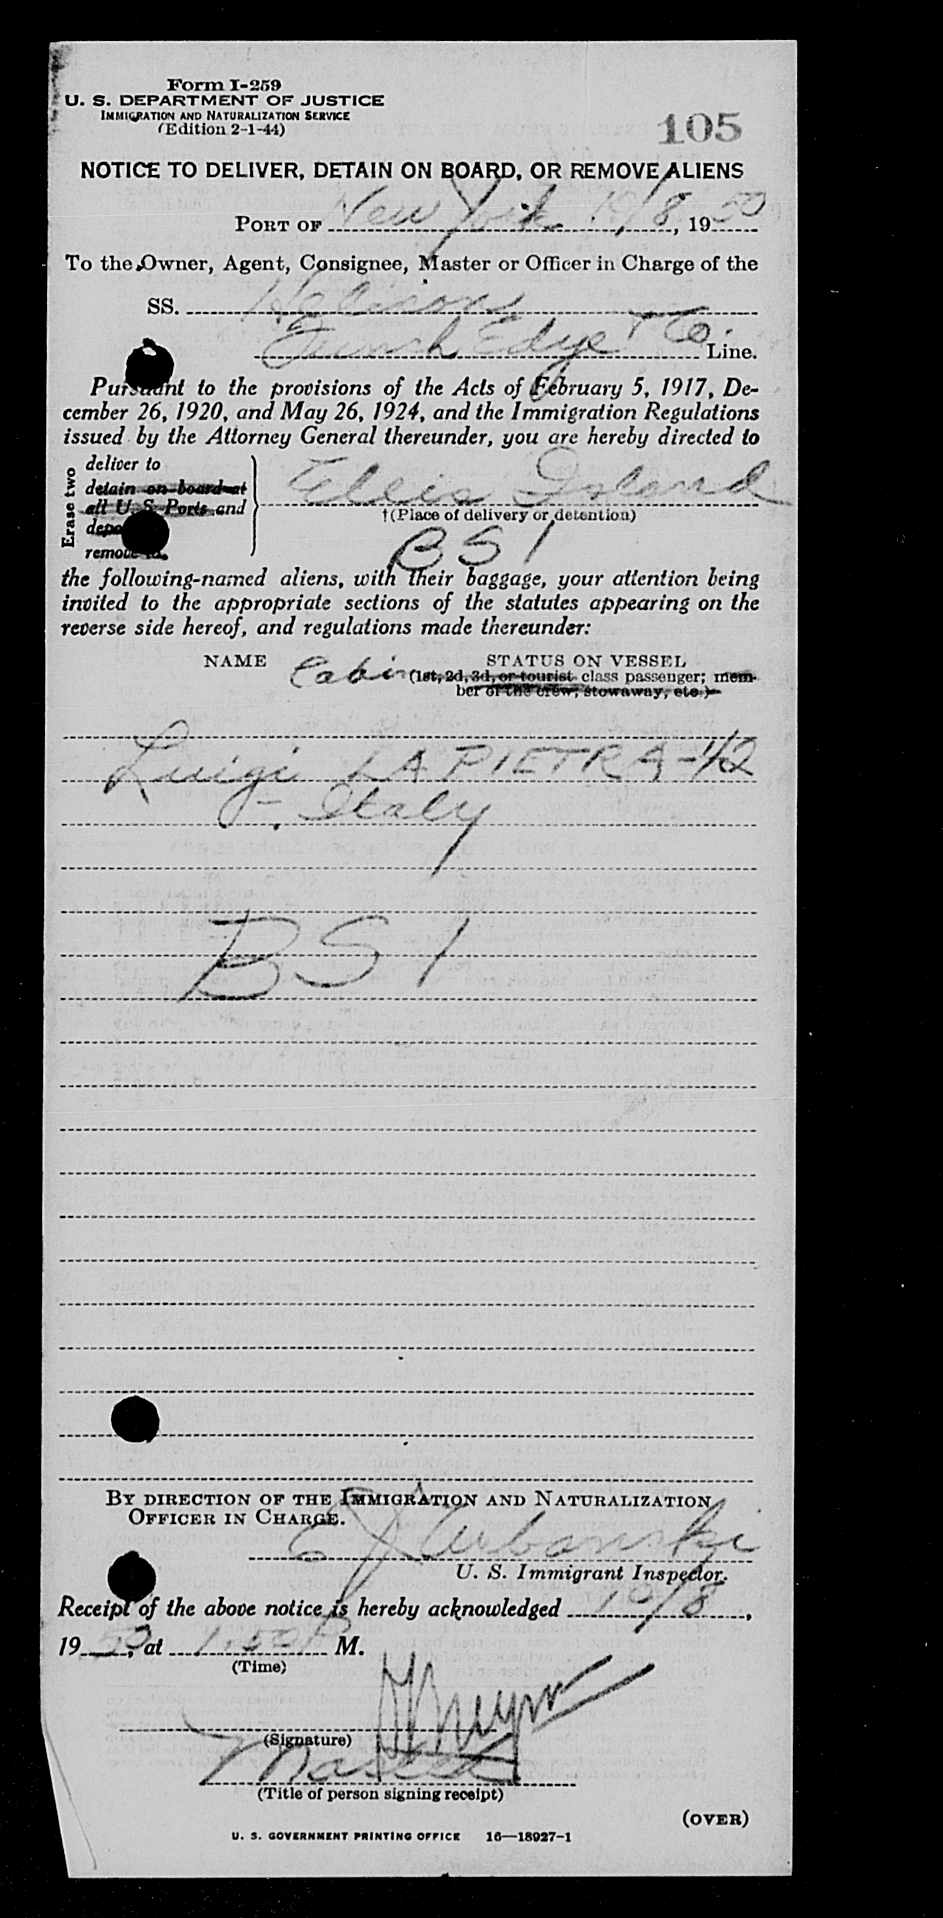 Form I-259
U. S. DEPARTMENT OF JUSTICE
IMMIGRATION AND NATURALIZATION SERVICE
(Edition 2-1-44)
105
NOTICE TO DELIVER, DETAIN ON BOARD, OR REMOVE ALIENS
PORT OF New York 10/8, 1950
To the Owner, Agent, Consignee, Master or Officer in Charge of the
SS.
Funch Edye & Co. Line.
Pursuant to the provisions of the Acts of February 5, 1917, De-
cember 26, 1920, and May 26, 1924, and the Immigration Regulations
issued by the Attorney General thereunder, you are hereby directed to
Erase two
deliver to
detain on board at
all U. S. Ports and
remove to
Ellis Island
†(Place of delivery or detention)
BS 1
the following-named aliens, with their baggage, your attention being
invited to the appropriate sections of the statutes appearing on the
reverse side hereof, and regulations made thereunder:
NAME Cabin STATUS ON VESSEL
(1st, 2d, 3d, or tourist class passenger; mem-
ber of the crew, stowaway, etc.)
Luigi LA PIETRA - 1/2
- Italy
BS 1
BY DIRECTION OF THE IMMIGRATION AND NATURALIZATION
OFFICER IN CHARGE.
E J Urbanski
U. S. Immigrant Inspector.
Receipt of the above notice is hereby acknowledged 10/8,
1950, at 1:50 P M.
(Time)
(Signature)
Master
(Title of person signing receipt)
(OVER)
U. S. GOVERNMENT PRINTING OFFICE 16—18927-1